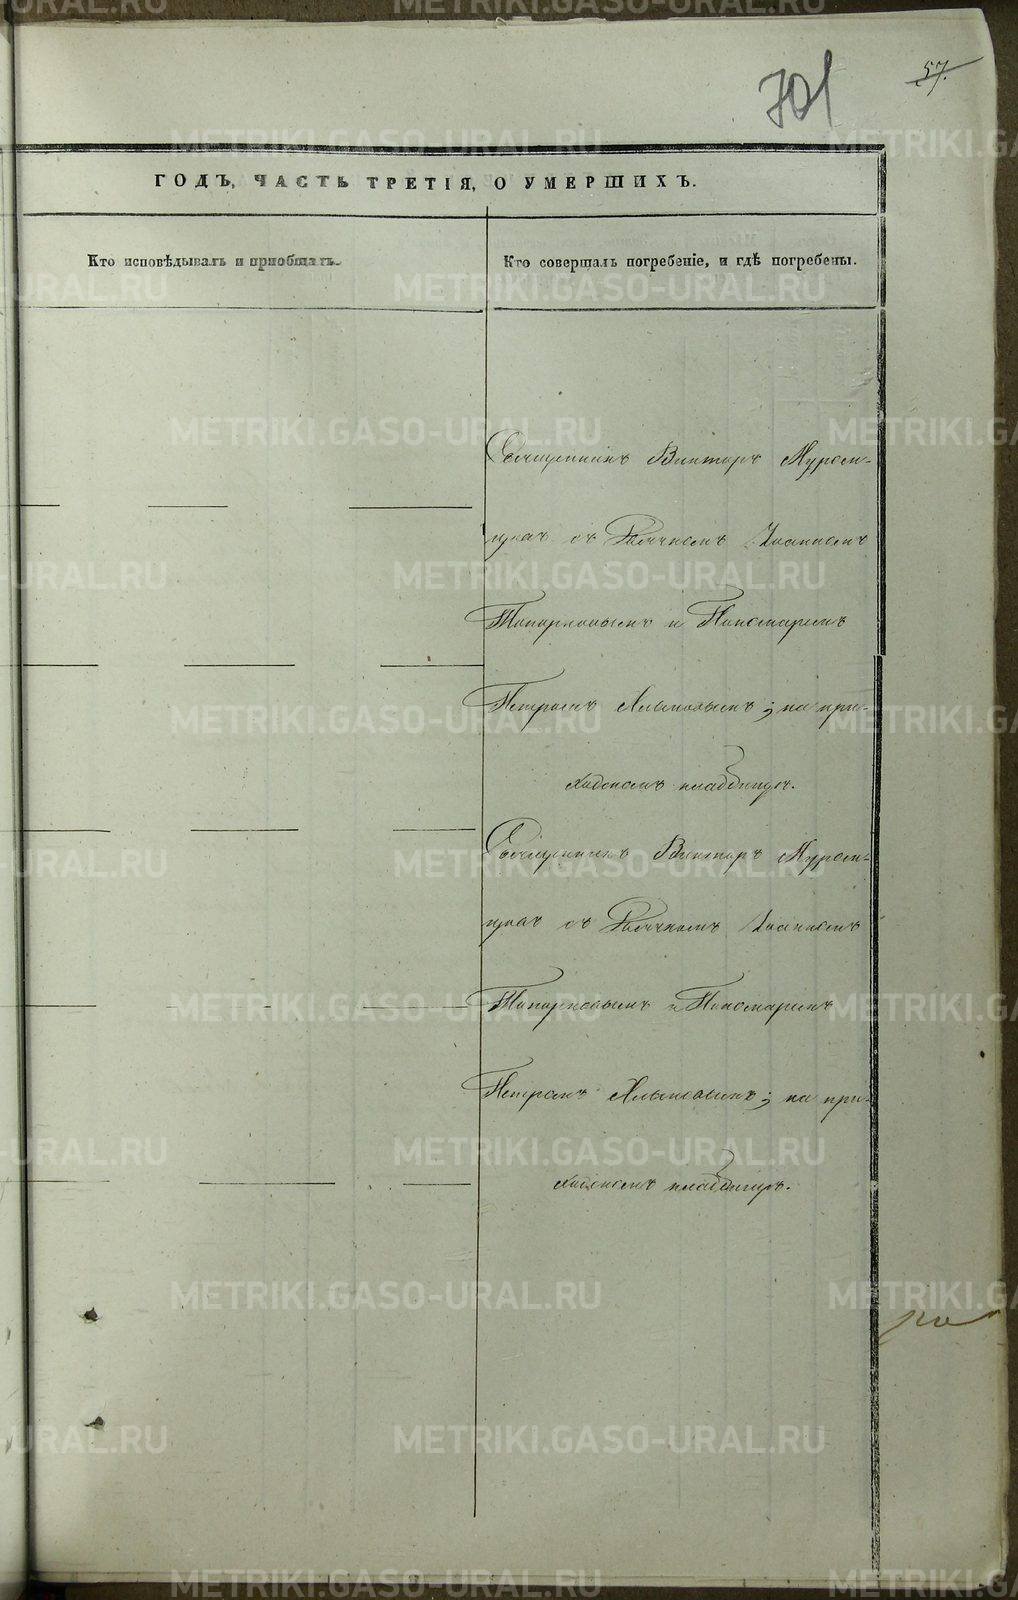 57.
701
ГОДЪ, ЧАСТЬ ТРЕТІЯ, О УМЕРШИХЪ.
Кто исповѣдывалъ и пріобщалъ.
Кто совершалъ погребеніе, и гдѣ погребены.
Священникъ Викторъ Муром-
цовъ съ Дьячкомъ Іоанномъ
Топорковымъ и Пономаремъ
Петромъ ; на при-
ходскомъ кладбищѣ.
Священникъ Викторъ Муром-
цовъ съ Дьячкомъ Іоанномъ
Топорковымъ и Пономаремъ
Петромъ ; на при-
ходскомъ кладбищѣ.
METRIKI.GASO-URAL.RU